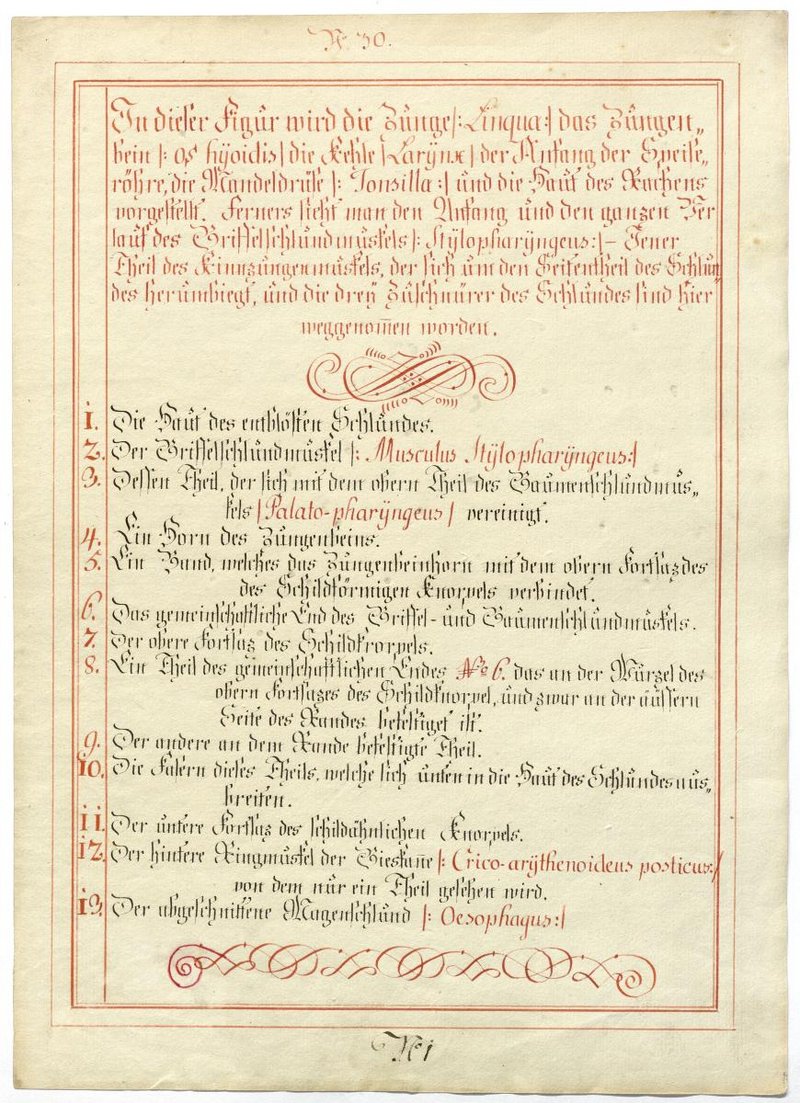 N. 30.
In dieser Figur wird die Zunge |: Lingua :| das Zungen„
bein |: os hÿoidis | die Kehle | Larÿnx | der Anfang der Speise„
röhre, die Mandeldrüse |: Tonsilla :| und die Haut des Rachens
vorgestellt. Ferners sieht man den Anfang und den ganzen Ver
lauf des Griffelschlundmuskels |: Stÿlopharÿngeus: | – Jener
Theil des Kinnzungenmuskels, der sich um den Seitentheil des Schlun
des herumbiegt, und die dreÿ Zuschnürer des Schlundes sind hier
weggenom̅en worden.
1. Die Haut des entblösten Schlundes.
2. Der Griffelschlundmuskel |: Musculus Stÿlopharÿngeus :|
3. Dessen Theil, der sich mit dem obern Theil des Gaumenschlundmus„
kels | Palato-pharÿngeus | vereinigt.
4. Ein Horn des Zungenbeins.
5. Ein Band, welches das Zungenbeinhorn mit dem obern Fortsaz des
des Schildförmigen Knorpels verbindet.
6. Das gemeinschaftliche End des Griffel- und Gaumenschlundmuskels.
7. Der obere Fortsaz des Schildkrorpels.
8. Ein Theil des gemeinschaftlichen Endes No 6. das an der Wurzel des
obern Fortsazes des Schildknorpel, und zwar an der äussern
Seite des Randes befestiget ist.
9. Der andere an dem Rande befestigte Theil.
10. Die Fasern dieses Theils, welche sich unten in die Haut des Schlundes aus„
breiten.
11. Der untere Fortsaz des schildähnlichen Knorpels.
12. Der hintere Ringmuskel der Gieskan̅e |: Crico-arÿthenoideus posticus: |
von dem nur ein Theil gesehen wird.
13. Der abgeschnittene Magenschlund |: Oesophagus: |
No 1